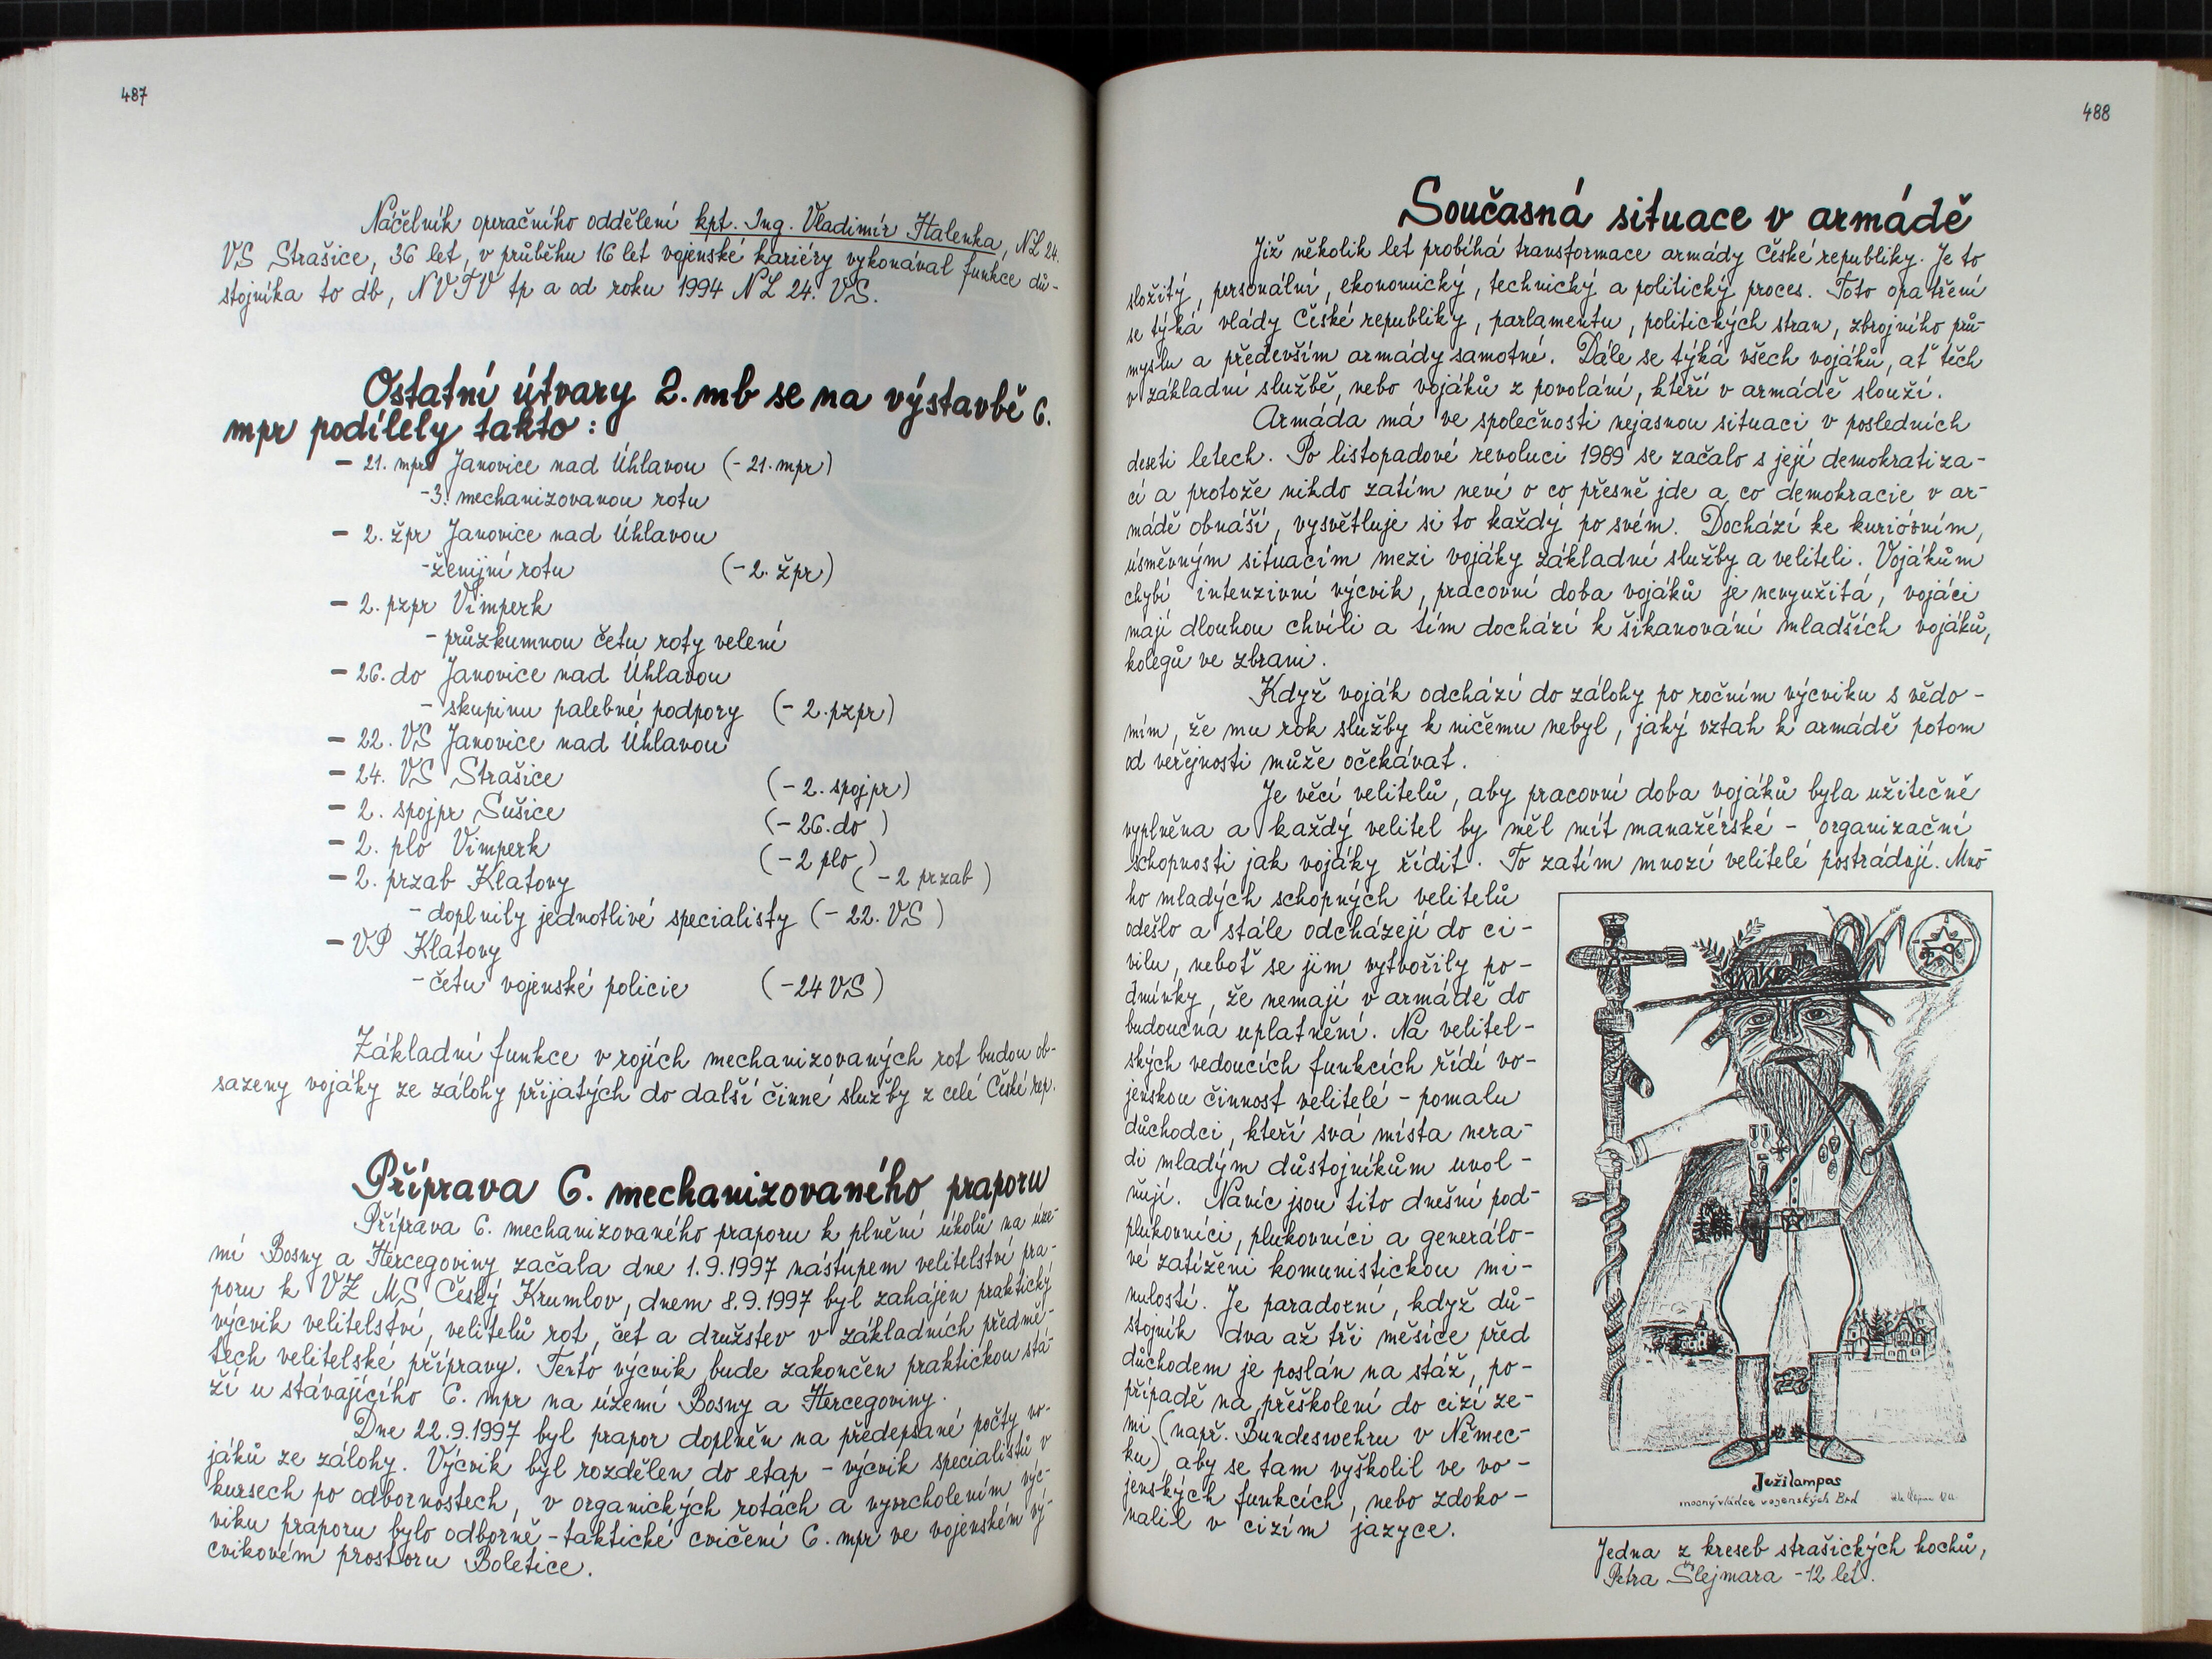 487
Náčelník operačního oddělení kpt. Ing. Vladimír Halenka, NL 24.
VS Strašice, 36 let, v průběhu 16 let vojenské kariéry vykonával funkce dů-
stojníka to db, NVTV tp a od roku 1994 NL 24. VS.
Ostatní útvary 2. mb se na výstavbě 6.
mpr podílely takto:
- 21. mpr Janovice nad Úhlavou (- 21. mpr)
- 3. mechanizovanou rotu
- 2. žpr Janovice nad Úhlavou
- ženijní rotu (- 2. žpr)
- 2. pzpr Vimperk
- průzkumnou četu roty velení
- 26. do Janovice nad Úhlavou
- skupinu palebné podpory (- 2. pzpr)
- 22. VS Janovice nad Úhlavou
- 24. VS Strašice (- 2. spojpr)
- 2. spojpr Sušice (- 26. do)
- 2. plo Vimperk (- 2 plo)
- 2. przab Klatovy (- 2 przab)
- doplnily jednotlivé specialisty (- 22. VS)
- VP Klatovy
- četu vojenské policie (- 24 VS)
Základní funkce v rojích mechanizovaných rot budou ob-
sazeny vojáky ze zálohy přijatých do další činné služby z celé České rep.
Příprava 6. mechanizovaného praporu
Příprava 6. mechanizovaného praporu k plnění úkolů na úze-
mí Bosny a Hercegoviny začala dne 1.9.1997 nástupem velitelství pra-
poru k VZ MS Český Krumlov, dnem 8.9.1997 byl zahájen praktický
výcvik velitelství, velitelů rot, čet a družstev v základních předmě-
tech velitelské přípravy. Tento výcvik bude zakončen praktickou stá-
ží u stávajícího 6. mpr na území Bosny a Hercegoviny.
Dne 22.9.1997 byl prapor doplněn na předepsané počty vo-
jáků ze zálohy. Výcvik byl rozdělen do etap - výcvik specialistů v
kursech po odbornostech, v organických rotách a vyvrcholením výc-
viku praporu bylo odborně - taktické cvičení 6. mpr ve vojenském vý-
cvikovém prostoru Boletice.
488
Současná situace v armádě
Již několik let probíhá transformace armády České republiky. Je to
složitý, personální, ekonomický, technický a politický proces. Toto opatření
se týká vlády České republiky, parlamentu, politických stran, zbrojního prů-
myslu a především armády samotné. Dále se týká všech vojáků, ať těch
v základní službě, nebo vojáků z povolání, kteří v armádě slouží.
Armáda má ve společnosti nejasnou situaci v posledních
deseti letech. Po listopadové revoluci 1989 se začalo s její demokratiza-
cí a protože nikdo zatím neví o co přesně jde a co demokracie v ar-
mádě obnáší, vysvětluje si to každý po svém. Dochází ke kuriózním,
úsměvným situacím mezi vojáky základní služby a veliteli. Vojákům
chybí intenzivní výcvik, pracovní doba vojáků je nevyužitá, vojáci
mají dlouhou chvíli a tím dochází k šikanování mladších vojáků,
kolegů ve zbrani.
Když voják odchází do zálohy po ročním výcviku s vědo-
mím, že mu rok služby k ničemu nebyl, jaký vztah k armádě potom
od veřejnosti může očekávat.
Je věcí velitelů, aby pracovní doba vojáků byla užitečně
vyplněna a každý velitel by měl mít manažérské - organizační
schopnosti jak vojáky řídit. To zatím mnozí velitelé postrádají. Mno-
ho mladých schopných velitelů
odešlo a stále odcházejí do ci-
vilu, neboť se jim vytvořily po-
dmínky, že nemají v armádě do
budoucna uplatnění. Na velitel-
ských vedoucích funkcích řídí vo-
jenskou činnost velitelé - pomalu
důchodci, kteří svá místa nera-
di mladým důstojníkům uvol-
ňují. Navíc jsou tito dnešní pod-
plukovníci, plukovníci a generálo-
vé zatíženi komunistickou mi-
nulostí. Je paradoxní, když dů-
stojník dva až tři měsíce před
důchodem je poslán na stáž, po-
případě na přeškolení do cizí ze-
mi (např. Bundeswehru v Němec-
ku), aby se tam vyškolil ve vo-
jenských funkcích, nebo zdoko-
nalil v cizím jazyce.
Ježilampas
mocný vládce vojenských Brd
Jedna z kreseb strašických hochů,
Petra Šlejmara - 12 let.